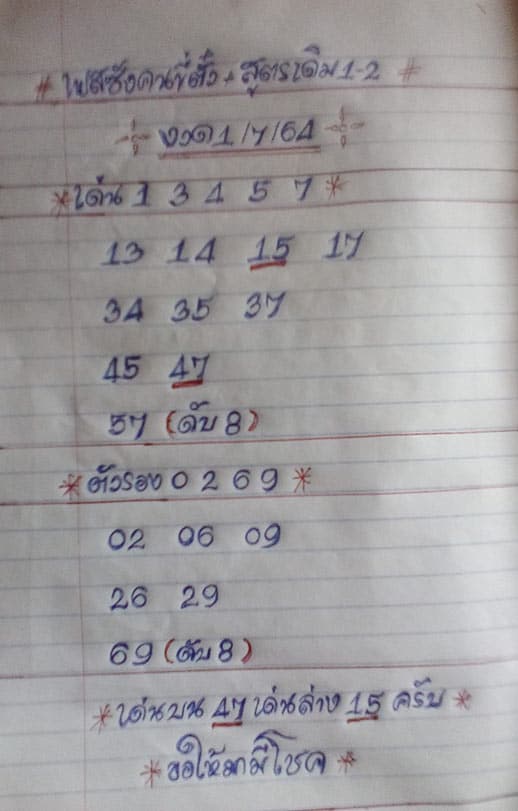 # เพสซังคนขี่ตั๋ว + สูตรเดิม 1-2 #
งวด 1/7/64
*เด่น 1 3 4 5 7 *
13 14 15 17
34 35 37
45 47
57 (ดับ 8)
*ตัวรอง 0 2 6 9 *
02 06 09
26 29
69 (ดับ 8)
*เด่นบน 47 เด่นล่าง 15 ครับ *
*ขอให้มามีโชค *